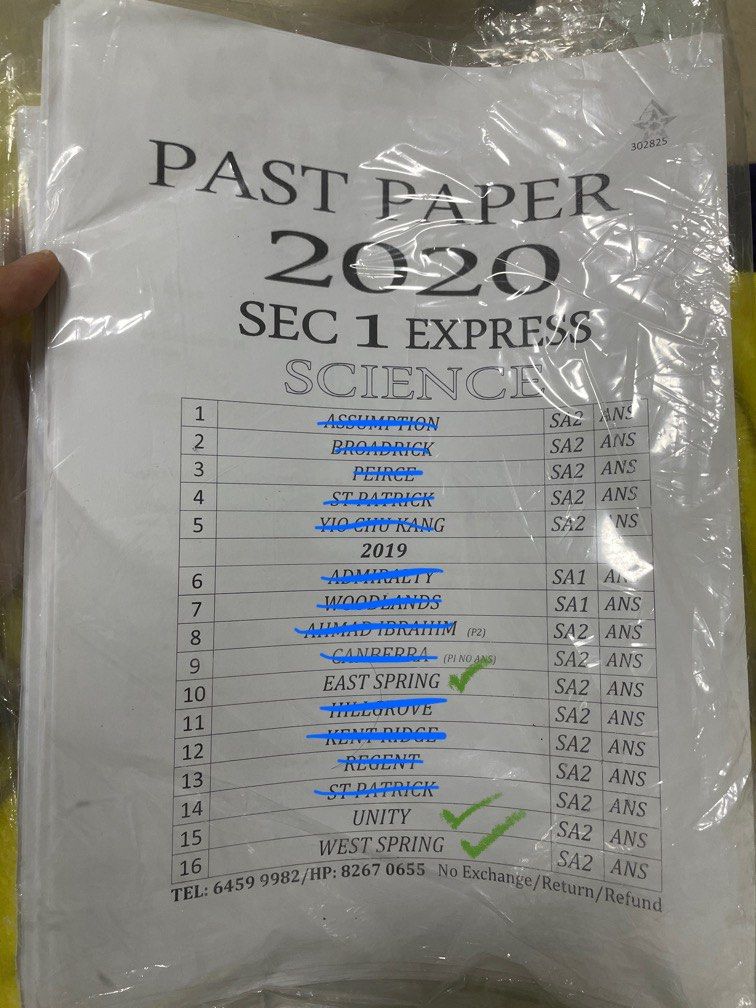 302825
PAST PAPER
2020
SEC 1 EXPRESS
SCIENCE
1 ASSUMPTION SA2 ANS
2 BROADRICK SA2 ANS
3 PEIRCE SA2 ANS
4 ST PATRICK SA2 ANS
5 YIO CHU KANG SA2 ANS
2019
6 ADMIRALTY SA1 AN
7 WOODLANDS SA1 ANS
8 AHMAD IBRAHIM (P2) SA2 ANS
9 CANBERRA (P1 NO ANS) SA2 ANS
10 EAST SPRING SA2 ANS
11 HILLGROVE SA2 ANS
12 KENT RIDGE SA2 ANS
13 REGENT SA2 ANS
14 ST PATRICK SA2 ANS
15 UNITY SA2 ANS
16 WEST SPRING SA2 ANS
TEL: 6459 9982/HP: 8267 0655 No Exchange/Return/Refund